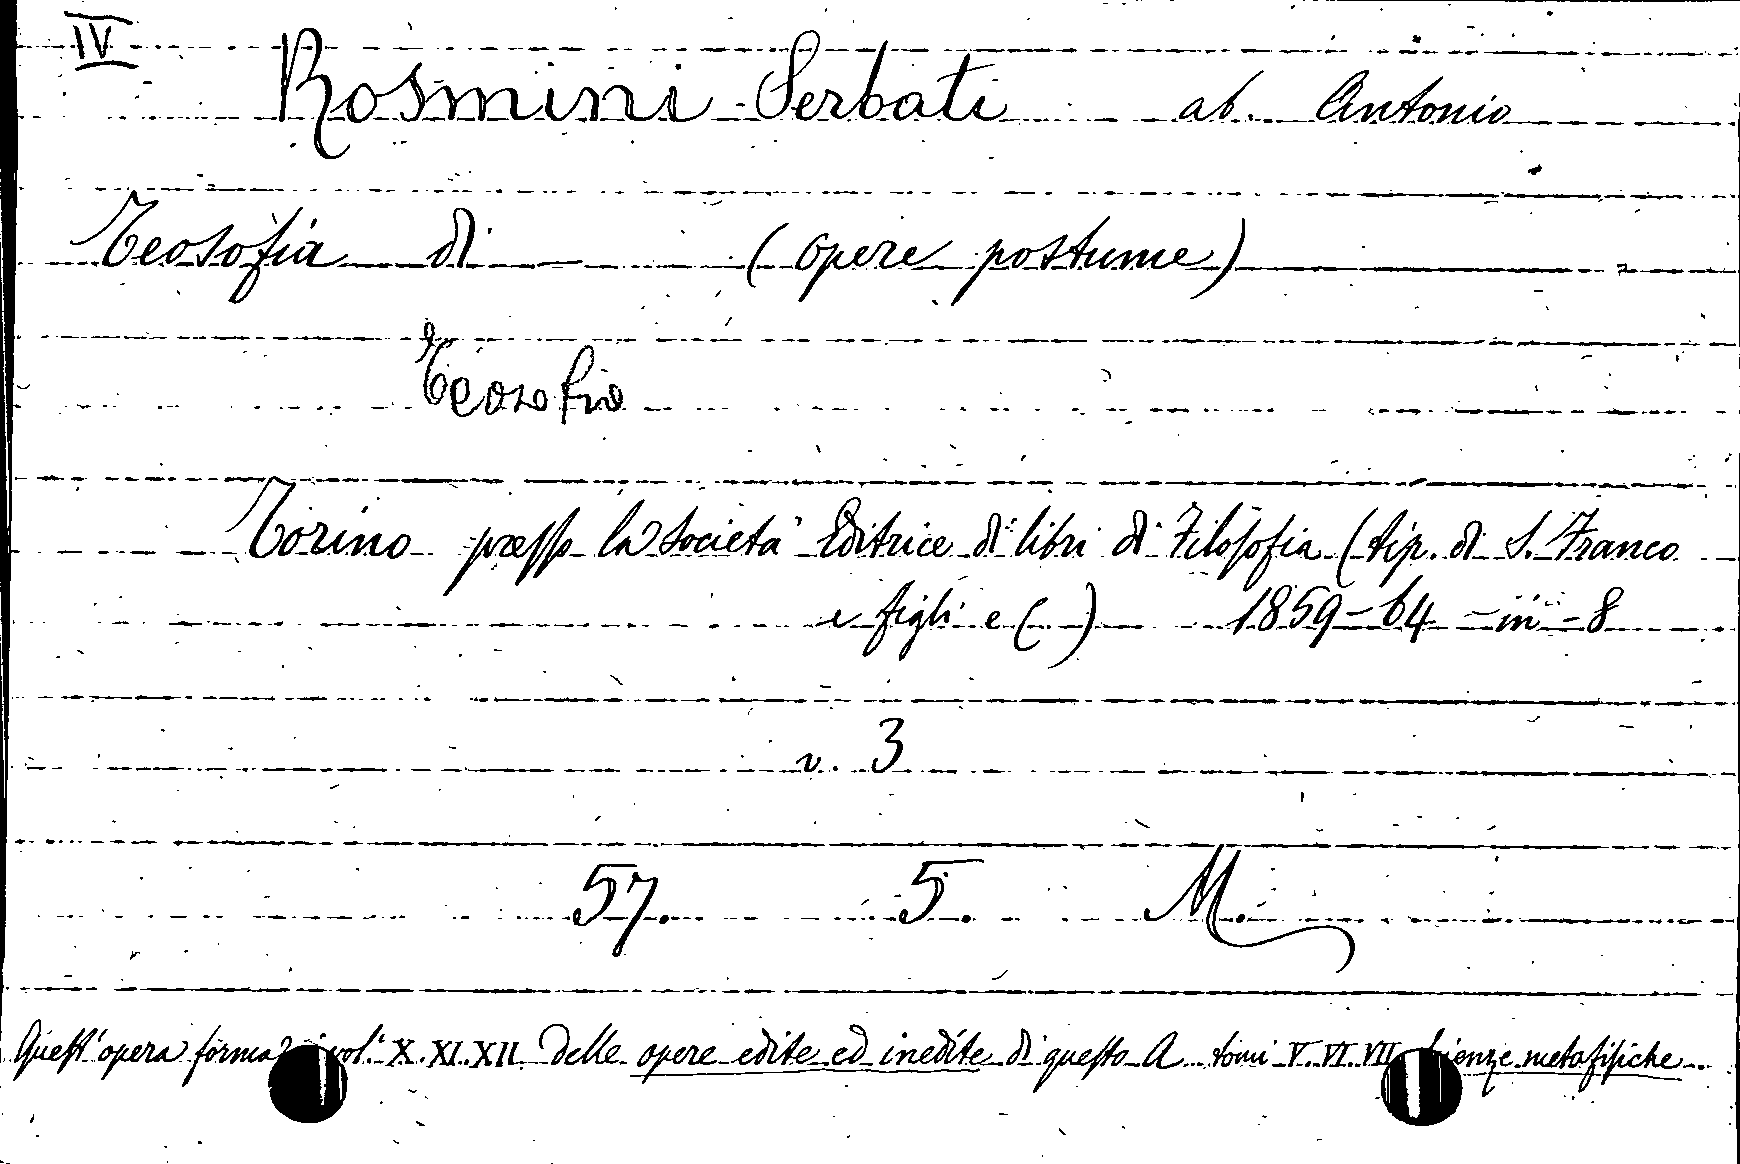 IV
Rosmini Serbati ab. Antonio
Teosofia di — (opere postume)
Teosofia
Torino presso la società Editrice di libri di Filosofia (tip. di S. Franco
e figli e ( ) 1859-64 - in - 8
v. 3
57. 5. M.
Quest'opera forma i vol.i X. XI. XII. delle opere edite ed inedite di questo A. tomi V. VI. VII metafisiche